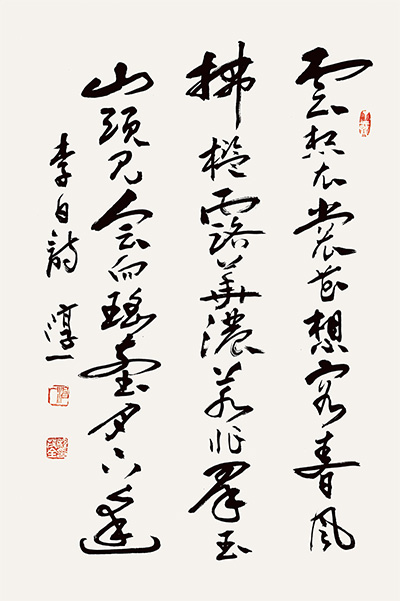 雲想衣裳花想容春風
拂檻露華濃若非羣玉
山頭見会向瑤臺月下逢
李白詩 淳一